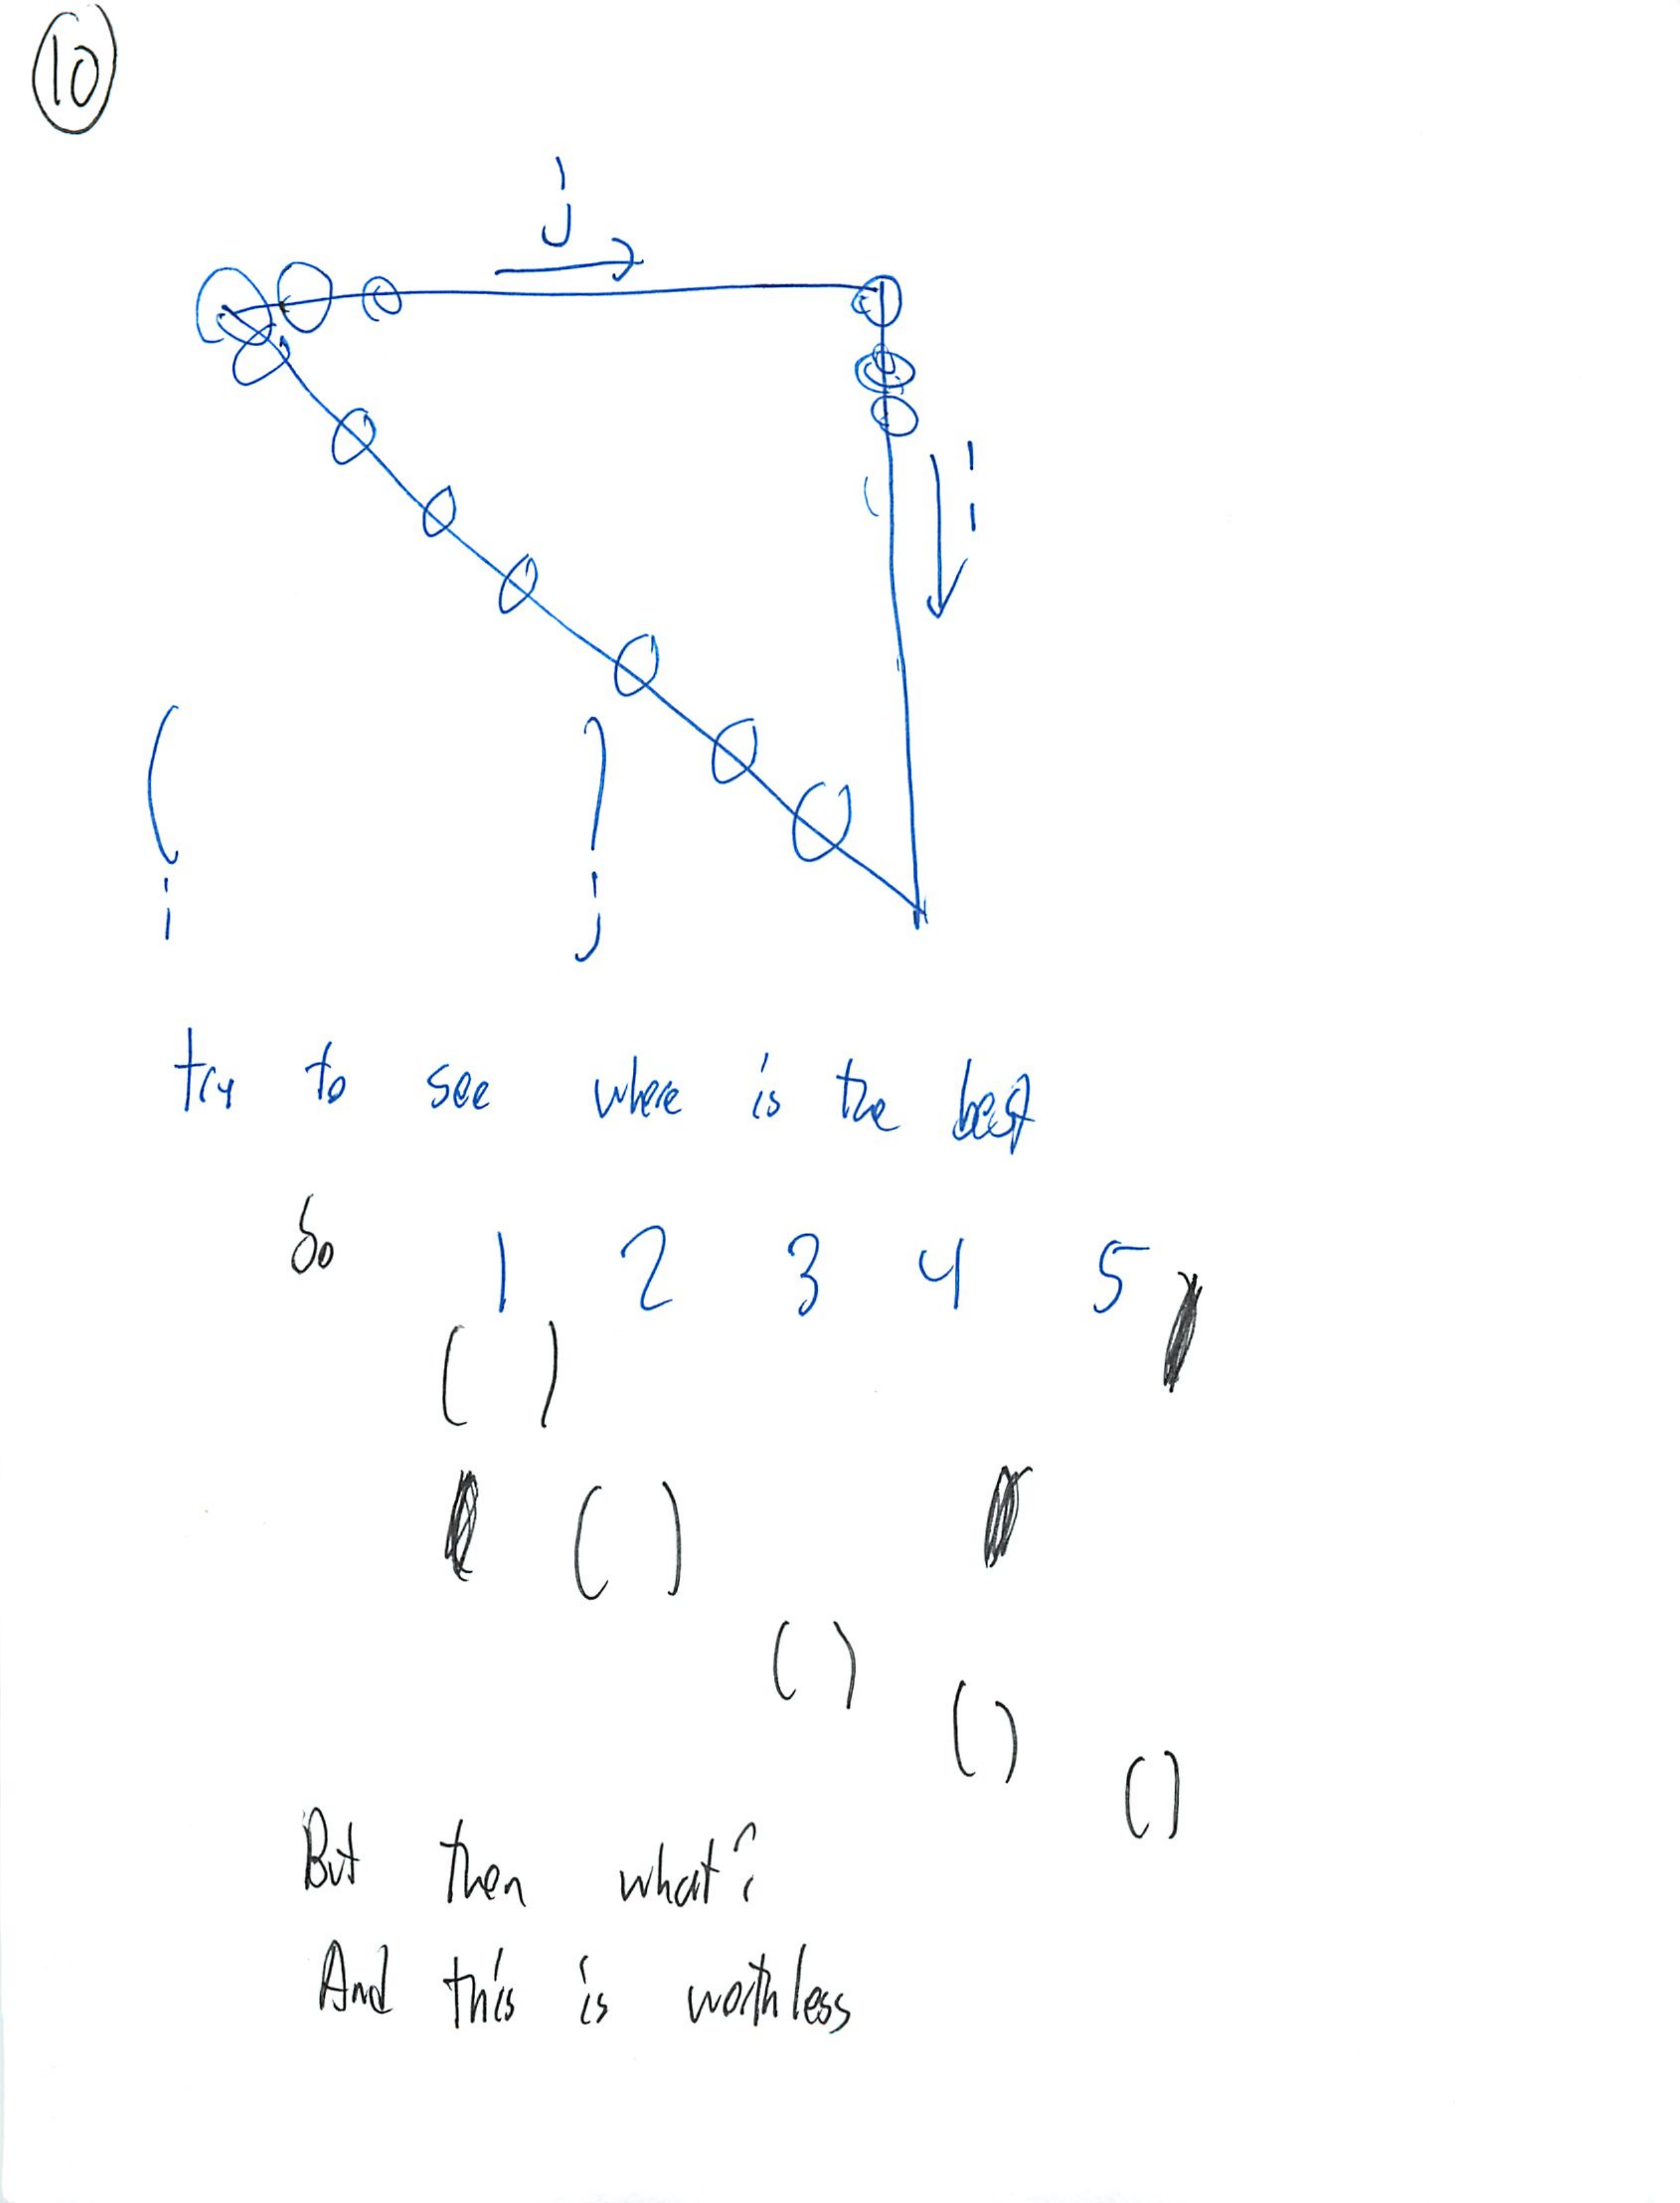 10
j
i
( )
i j
try to see where is the best
So 1 2 3 4 5
( )
( )
( )
( )
( )
But then what?
And this is worthless